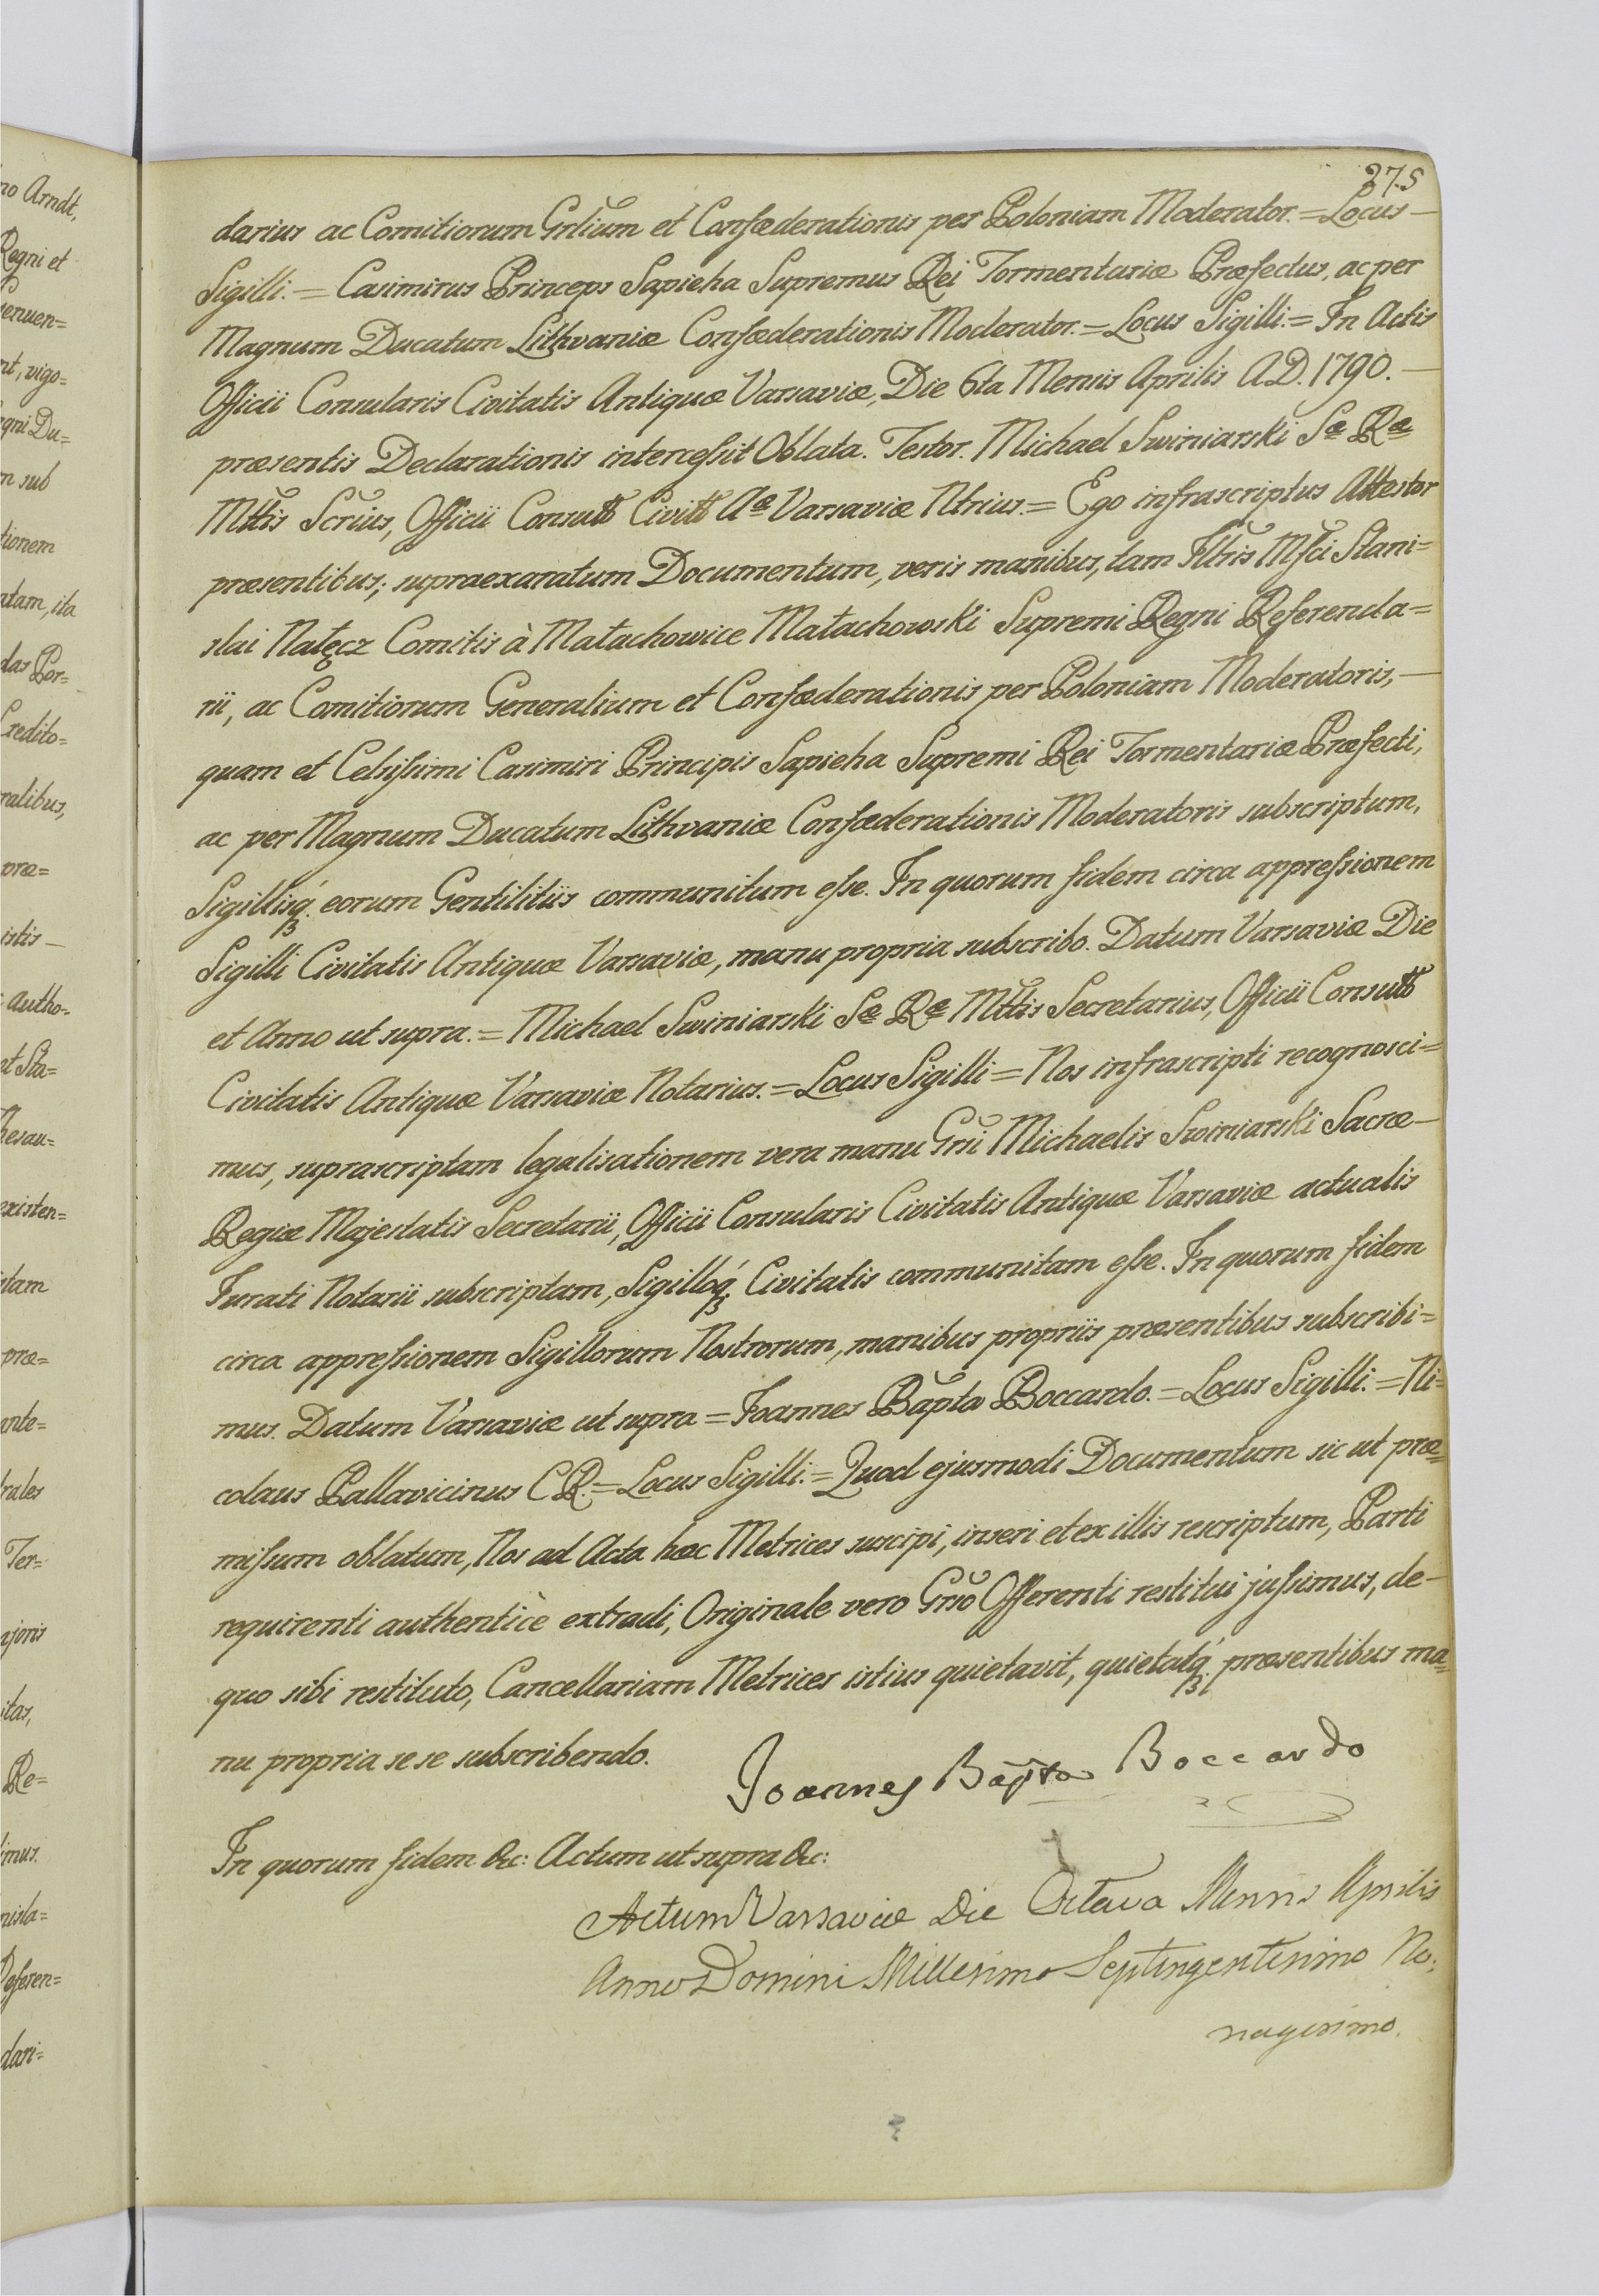 275
darius ac Comitiorum Grlium et Confœderationis per Poloniam Moderator. = Locus —
Sigilli. = Casimirus Princeps Sapieha Supremus Rei Tormentariæ Præfectus, ac per
Magnum Ducatum Lithvaniæ Confœderationis Moderator. = Locus Sigilli. = In Actis
Officii Consularis Civitatis Antiquæ Varsaviæ, Die 6ta Mensis Aprilis A.D. 1790. —
præsentis Declarationis intercessit Oblata. Testor. Michael Swiniarski Sæ Ræ
Mttis Scrius, Officii Consultt Civitt Aæ Varsaviæ Ntrius. = Ego infrascriptus Attestor
præsentibus; supraexaratum Documentum, veris manibus, tam Illtris Mfci Stani=
slai Nałęcz Comitis à Małachowice Małachowski Supremi Regni Referenda=
rii, ac Comitiorum Generalium et Confœderationis per Poloniam Moderatoris, —
quam et Celsissimi Casimiri Principis Sapieha Supremi Rei Tormentariæ Præfecti,
ac per Magnum Ducatum Lithvaniæ Confœderationis Moderatoris subscriptum,
Sigillisq́ eorum Gentilitiis communitum esse. In quorum fidem circa appressionem
Sigilli Civitatis Antiquæ Varsaviæ, manu propria subscribo. Datum Varsaviæ Die
et Anno ut supra. = Michael Swiniarski Sæ Ræ Mttis Secretarius, Officii Consultt
Civitatis Antiquæ Varsaviæ Notarius. = Locus Sigilli = Nos infrascripti recognosci=
mus, suprascriptam legalisationem vera manu Grsi Michaelis Swiniarski Sacræ —
Regiæ Majestatis Secretarii, Officii Consularis Civitatis Antiquæ Varsaviæ actualis
Jurati Notarii subscriptam, Sigilloq́ Civitatis communitam esse. In quorum fidem
circa appressionem Sigillorum Nostrorum, manibus propriis præsentibus subscribi=
mus. Datum Varsaviæ ut supra = Joannes Bapta Boccardo. = Locus Sigilli. = Ni=
colaus Pallavicinus C.R. = Locus Sigilli. = Quod ejusmodi Documentum sic ut præ=
missum oblatum, Nos ad Acta hæc Metrices suscipi, inseri et ex illis rescriptum, Parti
requirenti authenticè extradi, Originale vero Grso Offerenti restitui jussimus, de —
quo sibi restituto, Cancellariam Metrices istius quietavit, quietatq́ præsentibus ma=
nu propria se se subscribendo.
Joannes Bapta Boccardo
In quorum fidem &c: Actum ut supra &c:
Actum Varsaviæ Die Octava Mensis Aprilis
Anno Domini Millesimo Septingentesimo No=
nagesimo.
no Arndt,
Regni et
venuen=
nt, vigo=
egni Du=
m sub
tionem
atam, ita
das Por=
Credito=
ralibus,
præ=
istis —
autho=
et Sta=
Thesau=
existen=
præ=
ante=
Ter=
ajoris
Re=
imus.
nisla=
Referen=
dari=